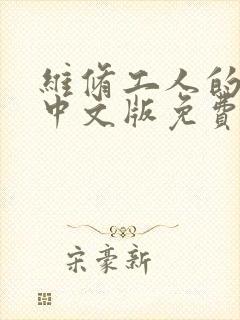 維脩工人的
中文版免費
宋豪新